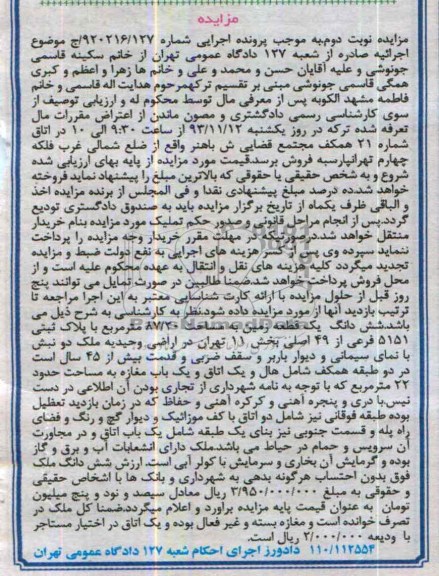 مزایده
مزایده نوبت دوم،به موجب پرونده اجرایی شماره ۹۲۰۲۱۶/۱۲۷/ج موضوع
اجرائیه صادره از شعبه ۱۲۷ دادگاه عمومی تهران از خانم سکینه قاسمی
جونوشی و علیه آقایان حسن و محمد و علی و خانم ها زهرا و اعظم و کبری
همگی قاسمی جونوشی مبنی بر تقسیم ترکهمرحوم هدایت اله قاسمی و خانم
فاطمه مشهد الکوبه پس از معرفی مال توسط محکوم له و ارزیابی توصیف از
سوی کارشناسی رسمی دادگستری و مصون ماندن از اعتراض مقررات مال
تعرفه شده ترکه در روز یکشنبه ۹۳/۱۱/۱۲ از ساعت ۹:۳۰ الی ۱۰ در اتاق
شماره ۲۱ همکف مجتمع قضایی ش باهنر واقع از ضلع شمالی غرب فلکه
چهارم تهرانپارسبه فروش برسد.قیمت مورد مزایده از پایه بهای ارزیابی شده
شروع و به شخص حقیقی یا حقوقی که بالاترین مبلغ را پیشنهاد نماید فروخته
خواهد شد.ده درصد مبلغ پیشنهادی نقدا و فی المجلس از برنده مزایده اخذ
و الباقی ظرف یکماه از تاریخ برگزار مزایده باید به صندوق دادگستری تودیع
گردد.پس از انجام مراحل قانونی و صدور حکم تملیک مورد مزایده بنام خریدار
منتقل خواهد شد.در صورتیکه در مهلت مقرر خریدار وجه مزایده را پرداخت
ننماید سپرده وی پس از کسر هزینه های اجرایی به نفع دولت ضبط و مزایده
تجدید میگردد کلیه هزینه های نقل و انتقال به عهده محکوم علیه است و از
محل فروش پرداخت خواهد شد.ضمنا طالبین در صورت تمایل می توانند پنج
روز قبل از حلول مزایده با ارائه کارت شناسایی معتبر به این اجرا مراجعه تا
ترتیب بازدید آنها از مورد مزایده داده شود.نظر به کارشناسی به شرح ذیل می
باشد.شش دانگ یک قطعه زمین به مساحت ۸۷/۳۰ مترمربع با پلاک ثبتی
۵۱۵۱ فرعی از ۴۹ اصلی بخش ۱۱ تهران در اراضی وحیدیه ملک دو نبش
با نمای سیمانی و دیوار باربر و سقف ضربی و قدمت بیش از ۴۵ سال است
در دو طبقه همکف شامل هال و یک اتاق و یک باب مغازه به مساحت حدود
۲۲ مترمربع که با توجه به نامه شهرداری از تجاری بودن آن اطلاعی در دست
نیس.با دری و پنجره آهنی و کرکره آهنی و حفاظ که در زمان بازدید تعطیل
بوده طبقه فوقانی نیز شامل دو اتاق با کف موزائیک و دیوار گچ و رنگ و فضای
راه پله و قسمت جنوبی نیز بنای یک طبقه شامل یک باب اتاق و در مجاورت
آن سرویس و حمام در حیاط می باشد.ملک دارای انشعابات آب و برق و گاز
بوده و گرمایش آن بخاری و سرمایش با کولر آبی است. ارزش شش دانگ ملک
فوق بدون احتساب هرگونه بدهی به شهرداری و بانک ها با اشخاص حقیقی
و حقوقی به مبلغ ۳/۹۵۰/۰۰۰/۰۰۰ ریال معادل سیصد و نود و پنج میلیون
تومان به عنوان قیمت پایه مزایده برآورد و اعلام میگردد.ضمنا کل ملک در
تصرف خوانده است و مغازه بسته و غیر فعال بوده و یک اتاق در اختیار مستاجر
با ودیعه ۳/۰۰۰/۰۰۰ ریال است.
۱۱۰/۱۱۲۵۵۴ دادورز اجرای احکام شعبه ۱۲۷ دادگاه عمومی تهران